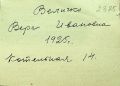 Величко
Вера Ивановна
1925г.
Котельная 14.